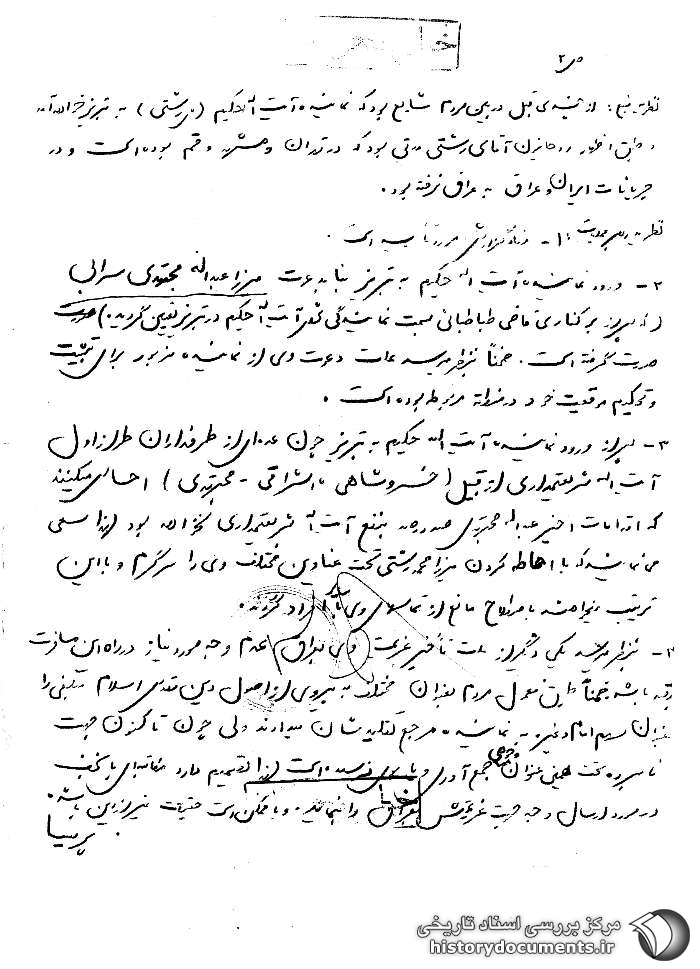 ص ۲
نظریه منبع: از هفته‌ی قبل در بین مردم شایع بود که نماینده آیت اله حکیم (رشتی) به تبریز خواهد آمد
و طبق اظهار روحانیون آقای رشتی مدتی بود که در تهران و مشهد و قم بوده است و در
جریانات ایران و عراق به عراق نرفته بود.
نظریه ۱- مفاد گزارش مورد تأیید است.
۲- ورود نماینده آیت اله حکیم به تبریز بنا به دعوت میرزا عبداله مجتهدی سرابی
(که پس از برکناری قاضی طباطبائی بسمت نمایندگی آیت اله حکیم در تبریز تعیین گردیده)
صورت گرفته است. ضمناً بنظر میرسد علت دعوت وی از نماینده مزبور برای تثبیت
و تحکیم موقعیت خود در منطقه مربوطه بوده است.
۳- پس از ورود نماینده آیت اله حکیم به تبریز چون عده‌ای از طرفداران طراز اول
آیت اله شریعتمداری از قبیل (خسروشاهی - اشراقی - مجتهدی) احساس میکنند
که اقدامات اخیر عبداله مجتهدی صد در صد بنفع آیت اله شریعتمداری نخواهد بود لذا سعی
می نمایند که با احاطه کردن میرزا محمد رشتی تحت عناوین مختلف وی را سرگرم و باین
ترتیب میخواهند باصطلاح مانع از تماسهای وی با افراد گردند.
۴- بنظر میرسد یکی دیگر از علت تأخیر عزیمت وی بعراق عدم وجه مورد نیاز در راه این مسافرت
باشد ضمناً طبق معمول مردم بعنوان مختلف به پیروی از اصول دین مقدس اسلام مبلغی را
بعنوان سهم امام و غیره به نماینده مرجع تقلیدشان میدادند ولی چون تا کنون جهت
نامبرده تحت همین عنوان وجوهی جمع آوری و بدست وی نرسیده است لذا تصمیم دارد مکاتبه‌ای با نجف
در مورد ارسال وجه جهت عزیمتش بعراق را بنماید. و یا ممکن است حقیقت غیر از این باشد.
پرسپا
مرکز بررسی اسناد تاریخی
historydocuments.ir